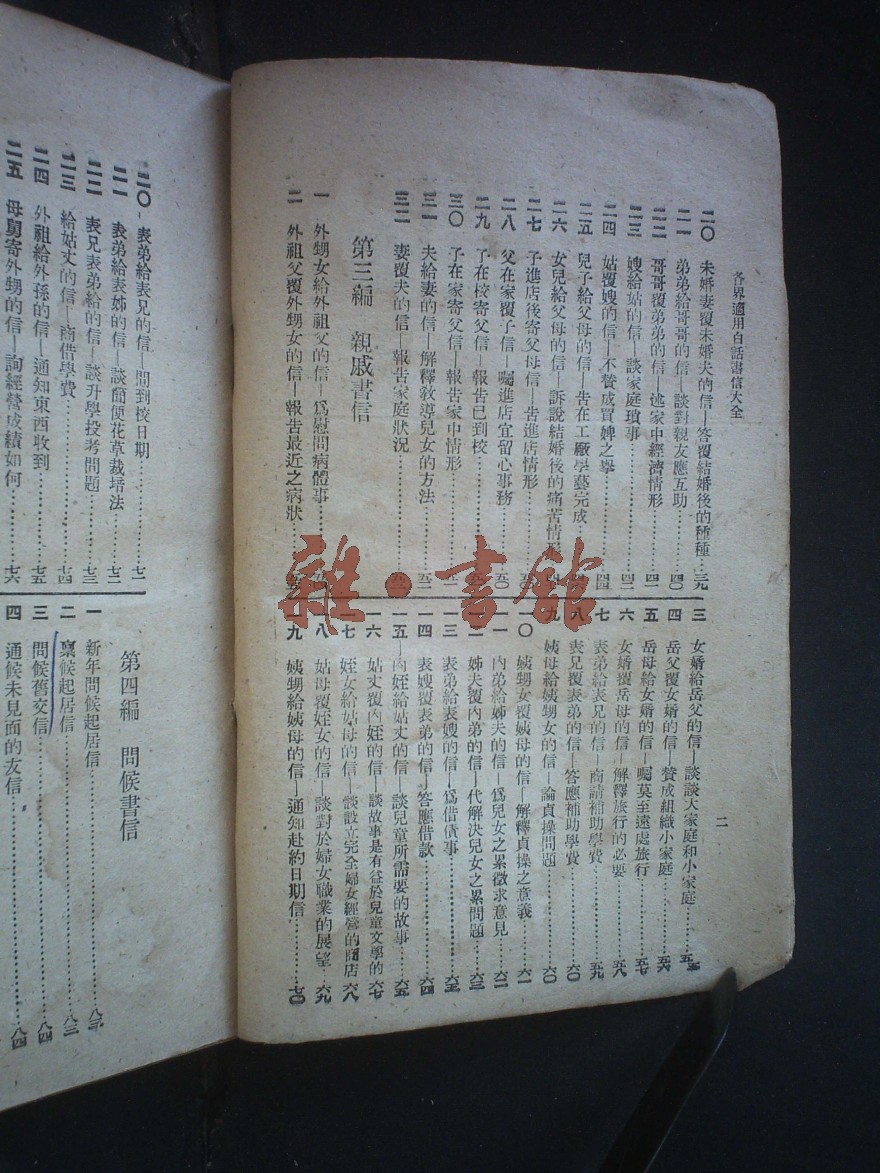 各界適用白話書信大全
二
二〇 未婚妻覆未婚夫的信—答覆結婚後的種種…三九
二一 弟弟給哥哥的信—談對親友應互助………四〇
二二 哥哥覆弟弟的信—述家中經濟情形………四一
二三 嫂給姑的信—談家庭瑣事………四二
二四 姑覆嫂的信—不贊成買婢之舉………四四
二五 兒子給父母的信—告在工廠學藝完成………
二六 女兒給父母的信—訴說結婚後的痛苦情形
二七 子進店後寄父母信—告進店情形………
二八 父在家覆子信—囑進店宜留心事務………五〇
二九 子在校寄父信—報告已到校………
三〇 子在家寄父信—報告家中情形………
三一 夫給妻的信—解釋教導兒女的方法………五二
三二 妻覆夫的信—報告家庭狀況………
第三編 親戚書信
一 外甥女給外祖父的信—爲慰問病體事………
二 外祖父覆外甥女的信—報告最近之病狀………
三 女婿給岳父的信—談談大家庭和小家庭………
四 岳父覆女婿的信—贊成組織小家庭………五六
五 岳母給女婿的信—囑莫至遠處旅行………五七
六 女婿覆岳母的信—解釋旅行的必要………五八
七 表弟給表兄的信—商請補助學費………五九
八 表兄覆表弟的信—答應補助學費………六〇
九 姨母給姨甥女的信—論貞操問題………六〇
一〇 姨甥女覆姨母的信—解釋貞操之意義………六一
一一 內弟給姊夫的信—爲兒女之累徵求意見…六二
一二 姊夫覆內弟的信—代解決兒女之累問題…六三
一三 表弟給表嫂的信—爲借債事………六三
一四 表嫂覆表弟的信—答應借款………六四
一五 內姪給姑丈的信—談兒童所需要的故事…六五
一六 姑丈覆內姪的信—談故事是有益於兒童文學的 六七
一七 姪女給姑母的信—談設立完全婦女經營的商店 六八
一八 姑母覆姪女的信—談對於婦女職業的展望 六九
一九 姨甥給姨母的信—通知赴約日期信………七〇
二〇 表弟給表兄的信—問到校日期………七一
二一 表弟給表姊的信—談簡便花草栽培法………七二
二二 表兄表弟給的信—談升學投考問題………七三
二三 給姑丈的信—商借學費………七四
二四 外祖給外孫的信—通知東西收到………七五
二五 母舅寄外甥的信—詢經營成績如何………七六
第四編 問候書信
一 新年問候起居信………八三
二 稟候起居信………八三
三 問候舊交信………八四
四 通候未見面的友信………八四
雜·書館